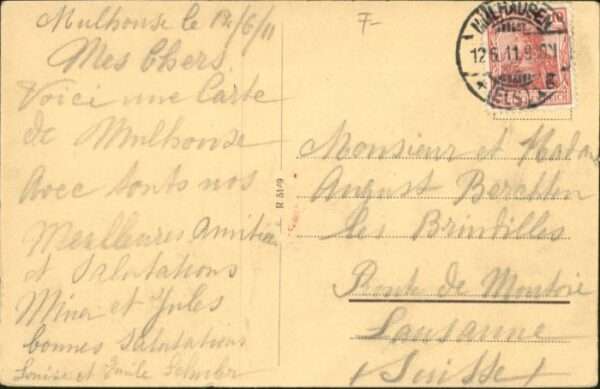 Mulhouse le 12/6/11
Mes Chers
Voici une Carte
de Mulhouse
Avec touts nos
Meilleures Amitiés
et Salutations
Mina et Jules
bonnes Salutations
Louise et Emile
7-
MÜLHAUSEN
12.6.11.9
(ELS)
R 3149
Monsieur et Madame
August
Les Brintilles
Route de Montoie
Lausanne
Suisse